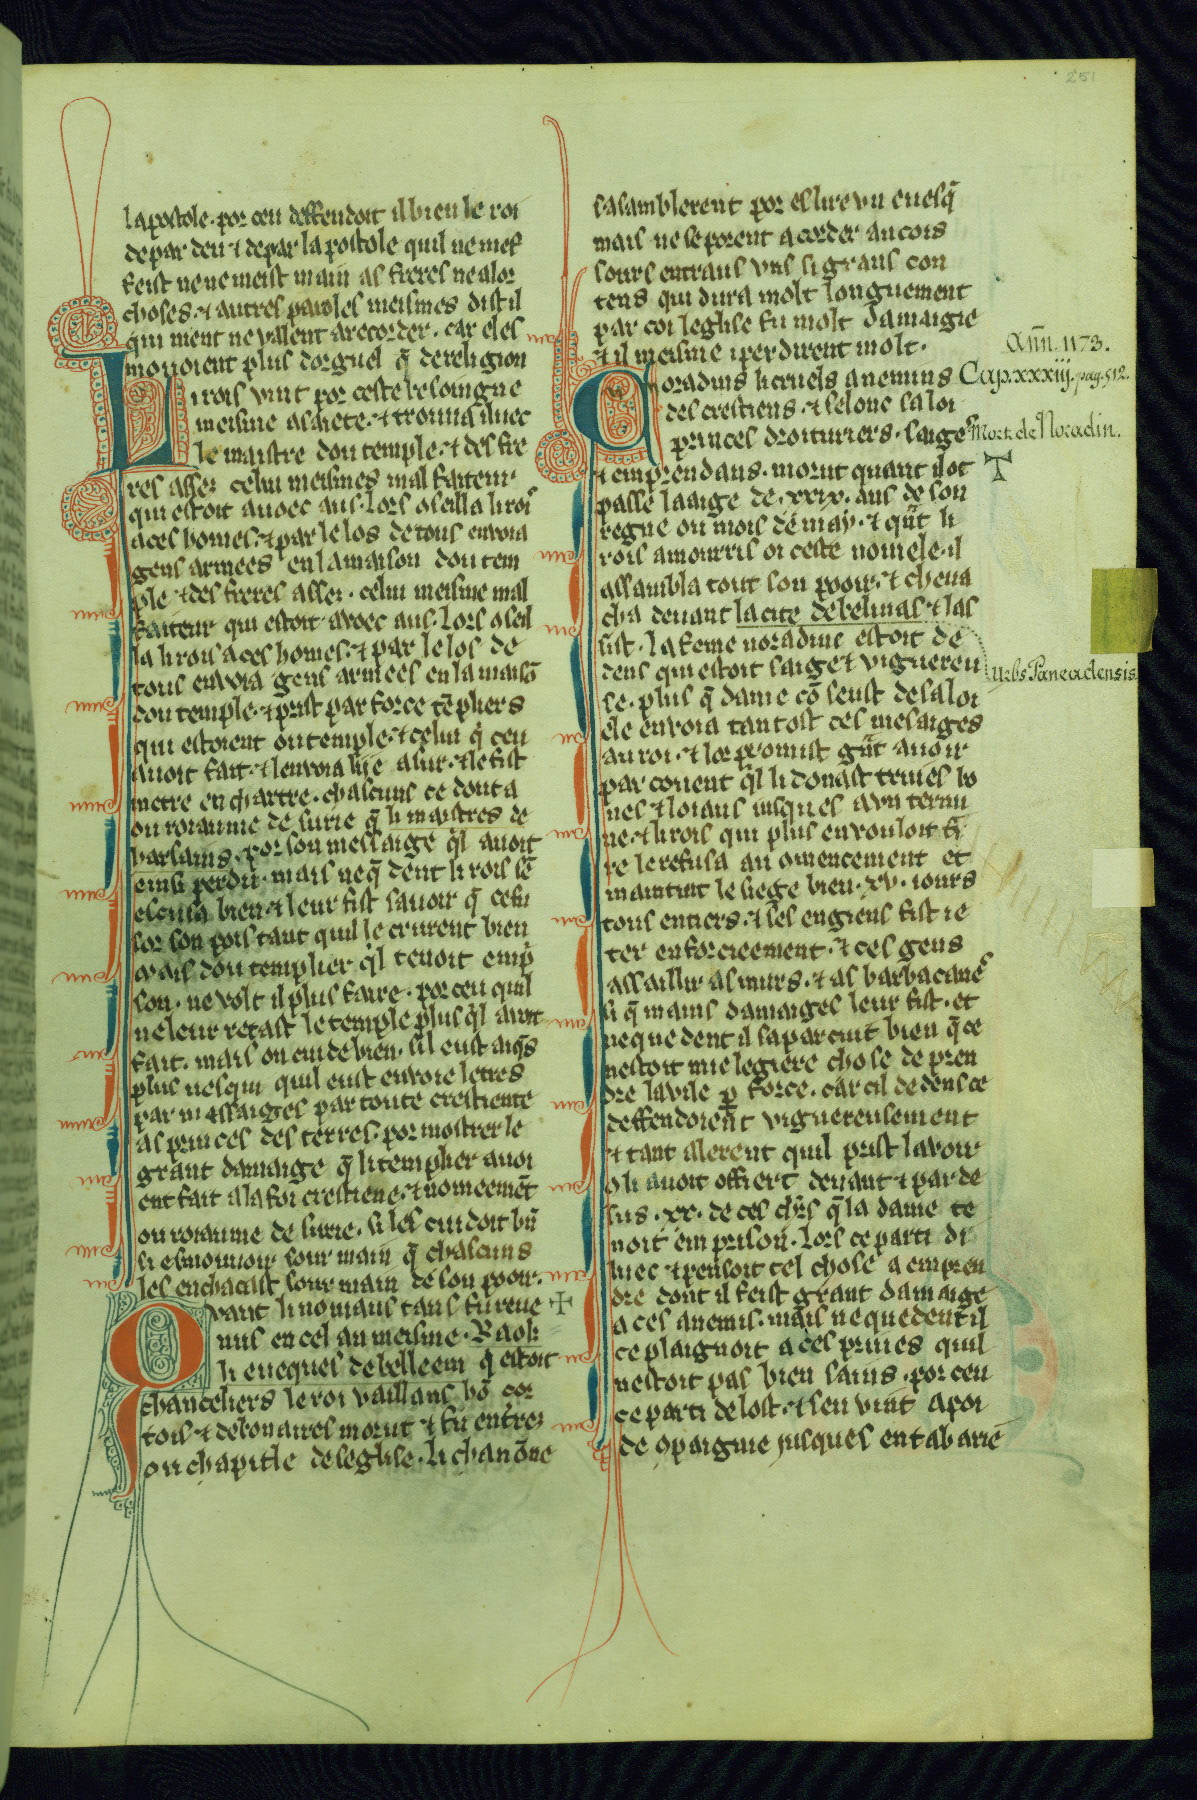 251
lapostole. por ceu deffendoit il bien le roi
de par deu ⁊ de par lapostole quil ne mef
feist ne ne meist main as freres ne a lor
choses. ⁊ autres paroles meismes dist il
qui ment ne valent a recorder. car eles
movoient plus dorguel q̄ de religion
Li rois vint por ceste besoingne
meisme a saiete. ⁊ trouua illuec
le maistre dou temple. ⁊ des fre
res assez celui meismes mal faiteur
qui estoit avoec aus. Lors oseilla li rois
a ces homes. ⁊ par le los de tous envoia
gens armees en la maison dou tem
ple ⁊ des freres assez. celui meisme mal
faiteur qui estoit avoec aus. Lors oseil
la li rois a ces homes. ⁊ par le los de
tous envoia gens armees en la maisō
dou temple. ⁊ prist par force tēpliers
qui estoient ou temple. ⁊ celui q̄ ceu
auoit fait. ⁊ lenvoia lije a sur. ⁊ le fist
metre en chartre. chascuns ce douta
ou roiaume de surie q̄ li maistres de
harsasins. por son messaige q̄l auoit
einsi perdu. mais neq̄dent li rois sē
escusa bien. ⁊ leur fist savoir q̄ cefu
sor son pois tant quil le crurent bien
mais dou templier q̄l tenoit emp̄
son. ne volt il plus faire. por ceu quil
ne leur retast le temple plus q̄l auoit
fait. mais on cuide bien. sil eust aiq̄s
plus uesqui quil eust envoie letres
par messaiges par toute crestiente
as princes des terres. por mostrer le
grant damaige q̄ li templier auoi
ent fait a la foi crestiene. ⁊ nomeemēt
ou roiaume de surie. si les cuidoit bn̄
si esmouuoir sour main q̄ chascuns
les enchacast sour main de son pooir.
Qvant li nomaus tans fu reue
nus en cel an meisme. Raols
li eueques de belleem q̄ estoit
chanceliers le roi vaillans hō cor
tois. ⁊ debonaires morut ⁊ fu entrez
ou chapitle de seglise. li chanōne
sasamblerent por eslire vn euesq̄
mais ne se porent acorder ancois
sours entraus vns si grans con
tens qui dura molt longuement
par coi leglise fu molt damaigie
⁊ il meisme i perdirent molt.
Noradins li cruels anemins
des crestiens. ⁊ selonc sa loi
princes droituriers. saiges
⁊ emprendans. morut quant il ot
passe laaige de .xxix. ans de son
regne ou mois de may. ⁊ q̄nt li
rois amourris oi ceste nouele. il
assambla tout son pooir. ⁊ cheua
cha deuant la cite de belinas ⁊ las
sist. la feme noradine estoit de
dens qui estoit saige ⁊ viguereu
se. plus q̄ dame cō seust de sa loi
ele envoia tantost ces mesaiges
au roi. ⁊ lor promist g̃nt auoir
par couent q̄l li donast triues bo
nes ⁊ loiaus iusques a vn termi
ne. ⁊ li rois qui plus en vouloit t̄i
re le refusa au omencement et
maintint le siege bien .xv. iours
tous entiers. ⁊ ses engiens fist ie
ter enforcieement. ⁊ ces gens
assaillir as murs. ⁊ as barbacanes
si q̄ mains damaiges leur fist. et
nequedent il saparcuit bien q̄ ce
nestoit mie legiere chose de pren
dre la vile ꝑ force. car cil dedens ce
deffendoient viguereusement
⁊ tant alerent quil prist lavoir
⁊ li auoit offiert deuant ⁊ par de
sus .xx. de ces chrs̄ q̄ la dame te
noit em prison. Lors ce parti di
luec ⁊ pensoit tel chose a empren
dre dont il feist grant damaige
a ces anemis. mais nequedent il
ce plaignoit a ces priues quil
nestoit pas bien sains. por ceu
ce parti de lost. ⁊ sen vint a poi
de opaignie jusques en tabarie
Ann. 1173.
Cap. xxxiij. pag. 512.
Mort de Noradin.
Urbs Paneadensis